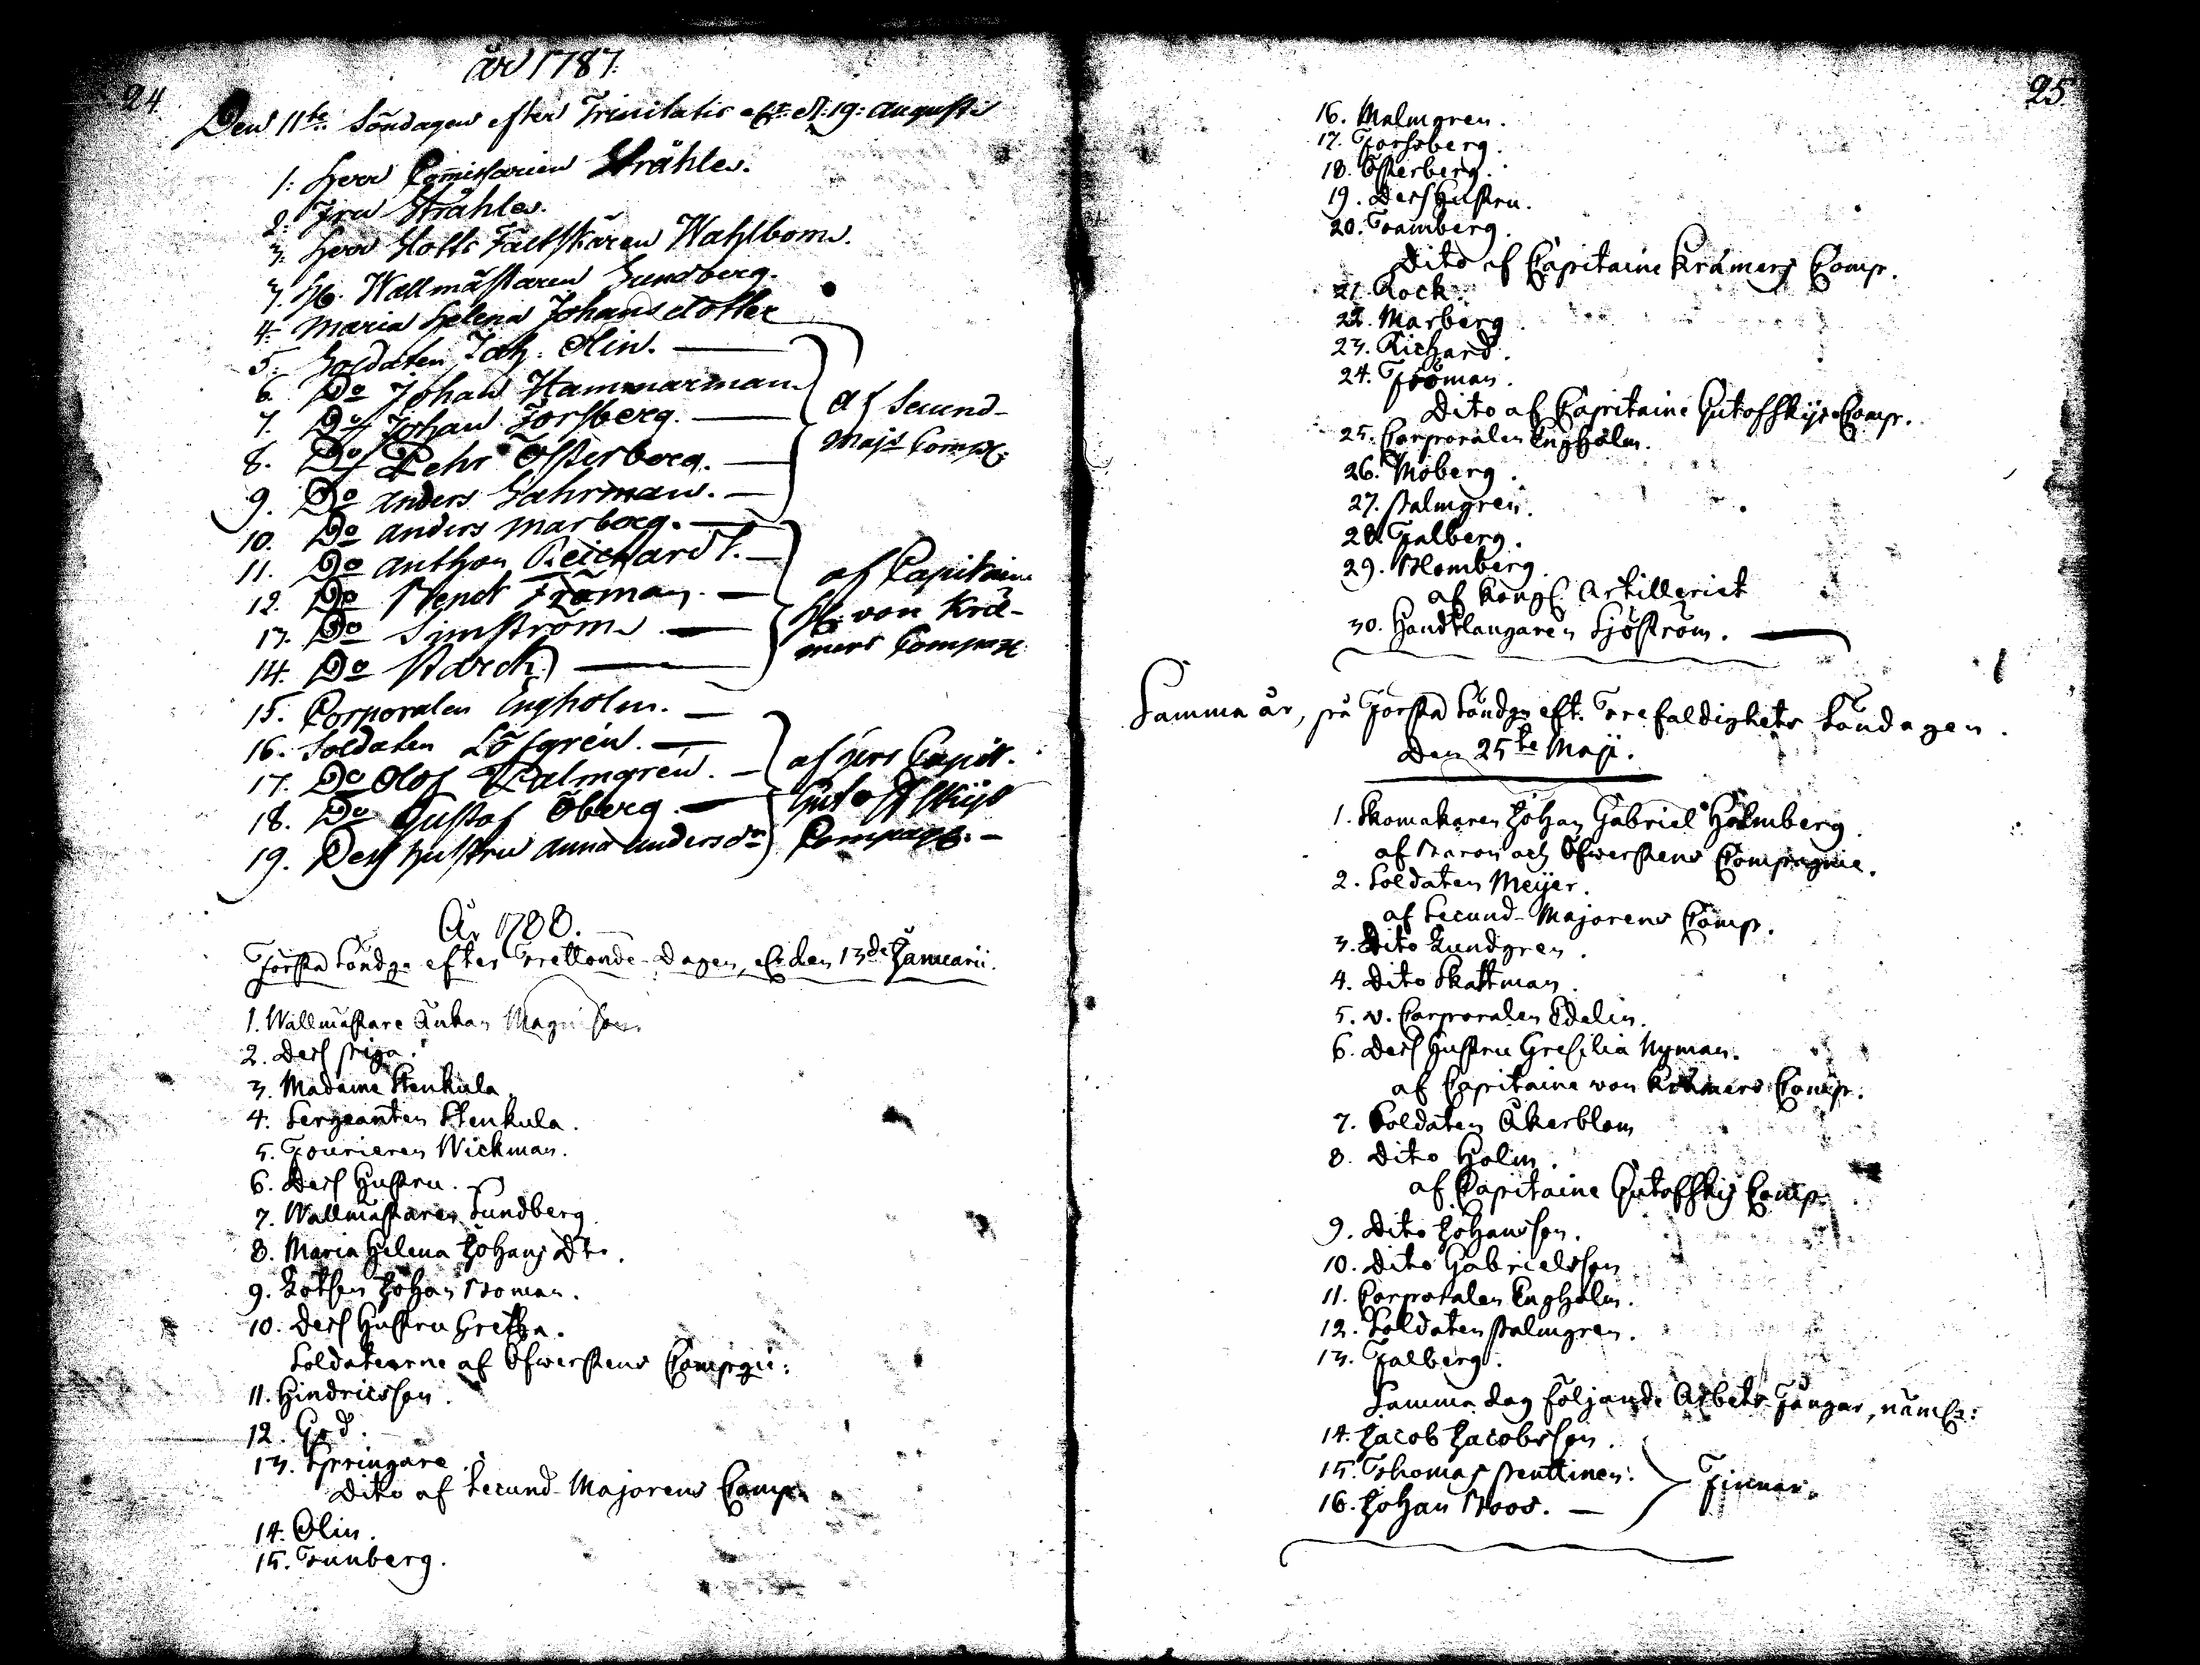 24.
År 1787.
Den 11te Söndagen efter Trinitatis el: d: 19: Augusti
1: Herr Comissarien Stråhle.
2: Fru Stråhle.
3: Herr Slotts Fältskären Wahlbom.
3. H. Wallmästaren Sundberg.
4. Maria Helena Johansdotter
5. Soldaten Joh: Olin. —
6. Do Johan Hammarman
7. Do Johan Forsberg. —
8. Do Pehr Österberg. —
9. Do Anders Gahrman. —
af Secund-
Majs Comp:
10. Do Anders Marberg. —
11. Do Anthon Reichardt. —
12. Do Bendt Fröman. —
13. Do Simström. —
14. Do Starck —
af Capitain
H. von Kræ-
mers Comp
15. Corporalen Engholm. —
16. Soldaten Löfgren. —
17. Do Olof Palmgren. —
18. Do Gustaf Öberg. —
19. Dess Hustru Anna Andersdr
af Herr Capit.
Gutofskijs
Compagn. —
År 1788.
Första Söndgn efter Trettonde-Dagen, el den 13de Januarii.
1. Wallmästare Enkan Magnuson
2. Dess piga.
3. Madame Stenkula
4. Sergeanten Stenkula.
5. Fourieren Wickman.
6. Dess Hustru.
7. Wallmästaren Sundberg.
8. Maria Helena Johans Dtr.
9. Lotsen Johan Boman.
10. Dess Hustru Gretha.
Soldaterne af Öfwerstens Compgn:
11. Hindricsson.
12. God.
13. Springare.
Dito af Secund-Majorens Comp.
14. Olin.
15. Tranberg.
25.
16. Malmgren.
17. Forssberg.
18. Österberg.
19. Dess Hustru.
20. Tramberg.
Dito af Capitaine Kramers Comp.
21. Rock.
22. Marberg.
23. Richard.
24. Fröman.
Dito af Capitaine Gutoffskijs Comp.
25. Corporalen Engholm.
26. Moberg.
27. Palmgren.
28. Falberg.
29. Blomberg.
af Kongl. Artilleriet
30. Handtlangaren Sjöström. —
Samma år, på Första Söndgn eft. Trefaldighets Söndagen.
Den 25te Maji.
1. Skomakaren Johan Gabriel Holmberg.
af Baron och Öfwerstens Compagnie.
2. Soldaten Meijer.
af Secund-Majorens Comp.
3. Dito Lundgren.
4. Dito Skattman.
5. v. Corporalen Edelin.
6. Dess Hustru Cresilia Nyman.
af Capitaine von Kramers Comp.
7. Soldaten Åkerblom
8. Dito Holm.
af Capitaine Gutoffskij Comp.
9. Dito Johansson.
10. Dito Gabrielsson
11. Corporalen Engholm.
12. Soldaten Palmgren.
13. Falberg.
Samma dag följande Arbets-Fångar, näml:
14. Jacob Jacobsson.
15. Thomas Penttinen.
16. Johan Boos. —
Finnar.